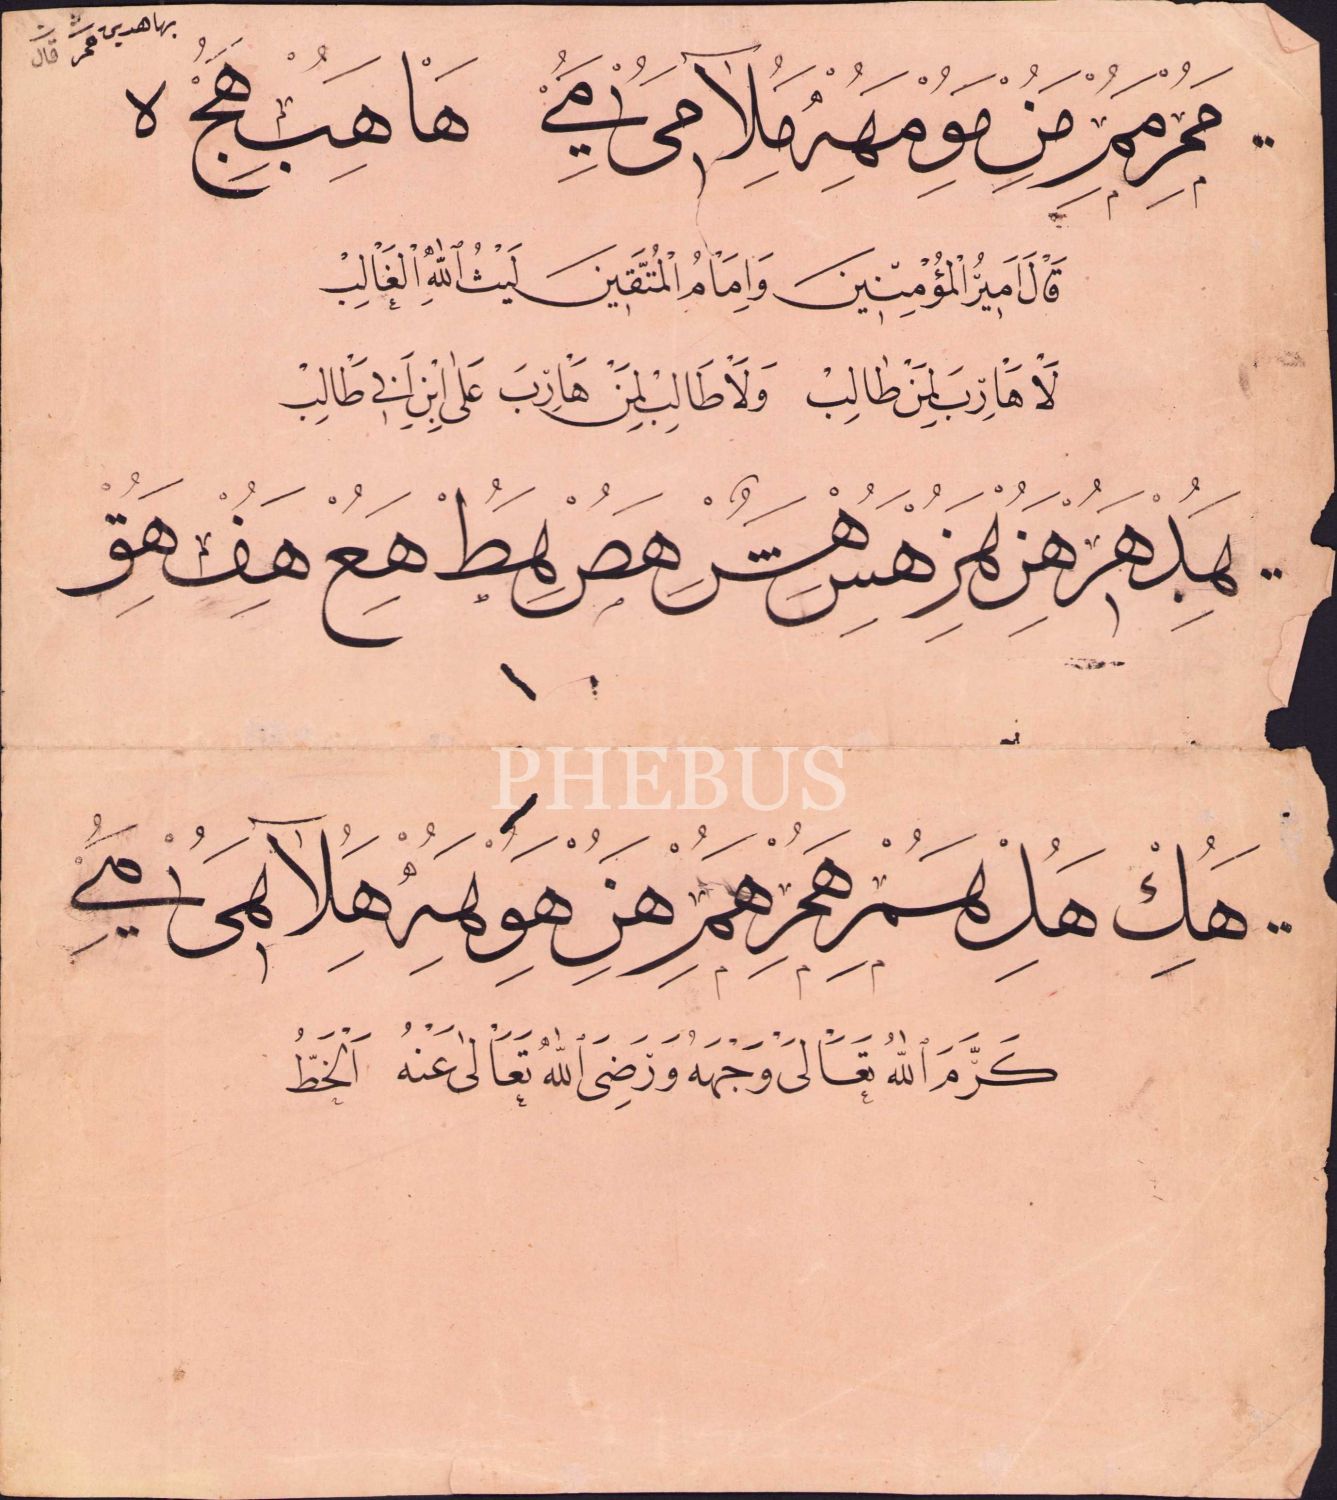 مَمُِرْ مَمُِرْ مَنُِ مَوُِ مَهُِ مَُلِا مَیُِ مَےُِ هَا هَبُِ هَجُِ ه
قَالَ اَمِيرُ الْمُؤْمِنِينَ وَاِمَامُ الْمُتَّقِينَ لَيْثُ اللّٰهِ الْغَالِبْ
لَا هَارِبَ لِمَنْ طَالِبْ وَلَا طَالِبْ لِمَنْ هَارِبَ عَلَى ابْنِ اَبِي طَالِبْ
هَدُِ هَرُِ هَنُِ هَزُِ هَسُِ هَشُِ هَصُِ هَطُِ هَعُِ هَفُِ هَقُِ
PHEBUS
هَكُِ هَلُِ هَمُِ هَمُِ هَمُِ هَنُِ هَوُِ هَهُِ هَُلِا هَیُِ مَےُِ
كَرَّمَ اللّٰهُ تَعَالَى وَجْهَهُ وَرَضِيَ اللّٰهُ تَعَالٰى عَنْهُ اَلْخَطُّ